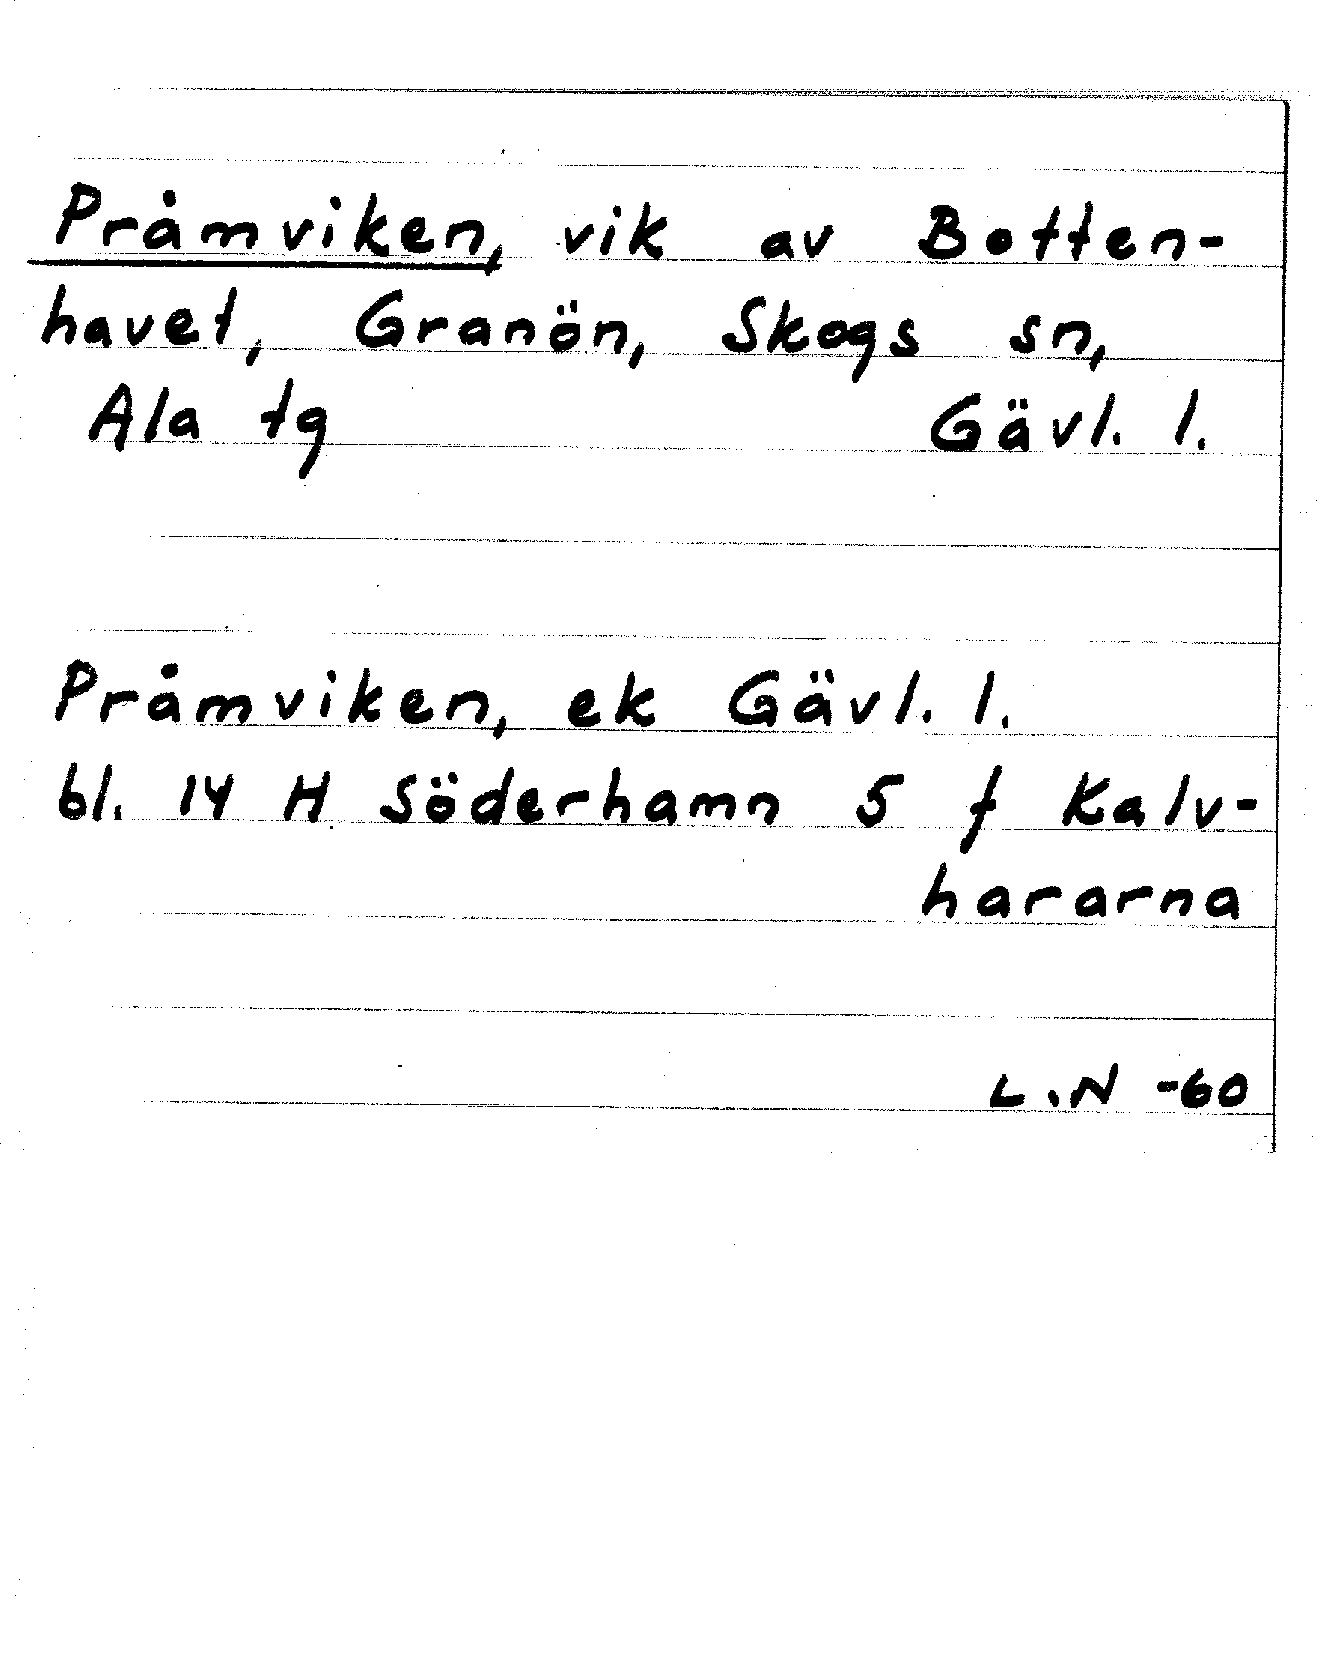 Pråmviken, vik av Botten-
havet, Granön, Skogs sn,
Ala tg Gävl. l.
Pråmviken, ek Gävl. l.
bl. 14 H Söderhamn 5 f Kalv-
hararna
L.N -60